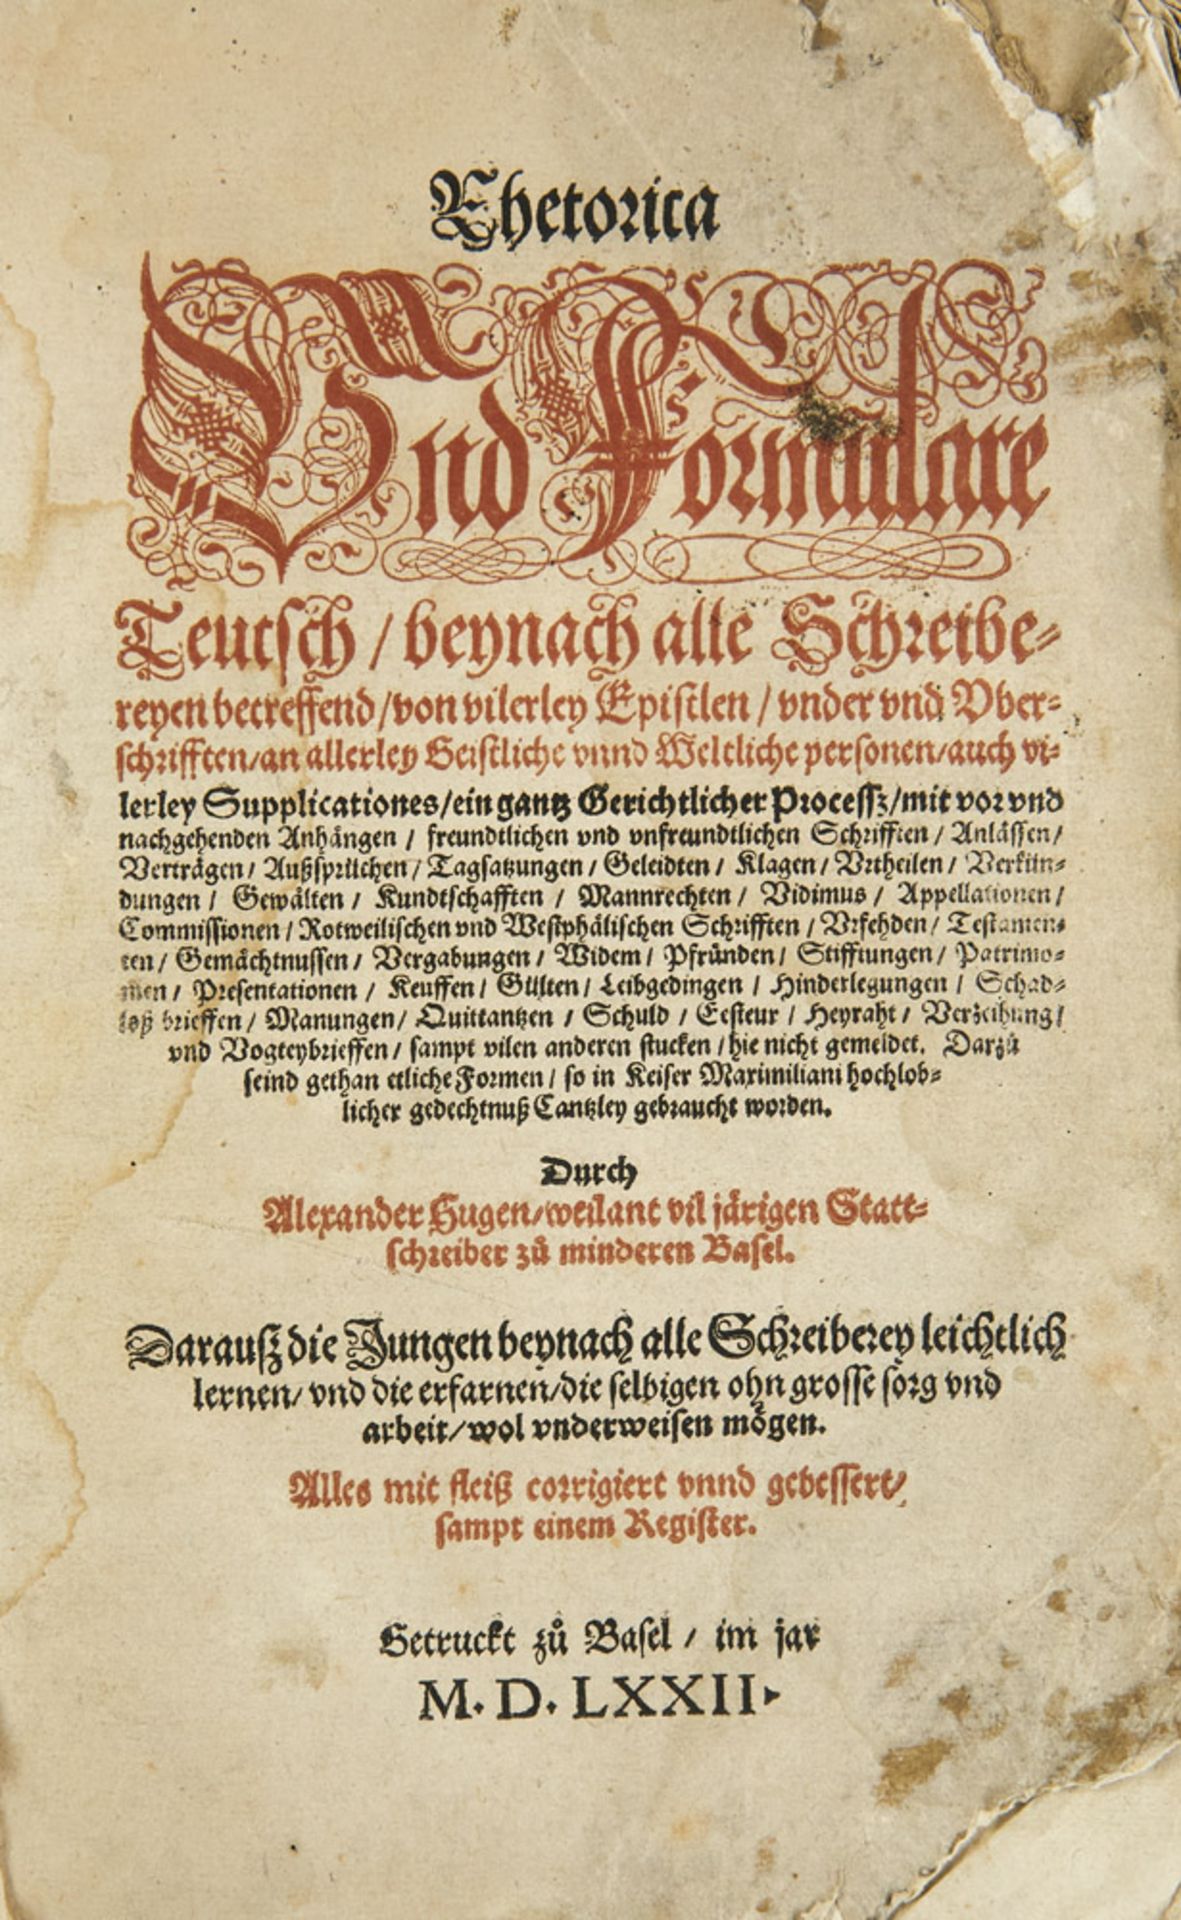 Rhetorica
Vnd Formulare
Teutsch / beynach alle Schreibe⸗
reyen betreffend / von vilerley Epistlen / vnder vnd Vber⸗
schrifften / an allerley Geistliche vnnd Weltliche personen / auch vi⸗
lerley Supplicationes / ein gantz Gerichtlicher Processz / mit vor vnd
nachgehenden Anhängen / freundtlichen vnd vnfreundtlichen Schrifften / Anlässen /
Verträgen / Außsprüchen / Tagsatzungen / Geleidten / Klagen / Vrtheilen / Verkün⸗
dungen / Gewälten / Kundtschafften / Mannrechten / Vidimus / Appellationen /
Commissionen / Rotweilischen vnd Westphälischen Schrifften / Vrfehden / Testamen⸗
ten / Gemächtnussen / Vergabungen / Widem / Pfründen / Stifftungen / Patrimo⸗
nien / Presentationen / Keuffen / Gülten / Leibgedingen / Hinderlegungen / Schad⸗
loß brieffen / Manungen / Quittantzen / Schuld / Eesteur / Heyraht / Verzeihung /
vnd Vogteybrieffen / sampt vilen anderen stucken / hie nicht gemeldet. Darzů
seind gethan etliche Formen / so in Keiser Maximiliani hochlob⸗
licher gedechtnuß Cantzley gebraucht worden.
Durch
Alexander Hugen / weilant vil järigen Statt⸗
schreiber zů minderen Basel.
Darausz die Jungen beynach alle Schreiberey leichtlich
lernen / vnd die erfarnen / die selbigen ohn grosse sorg vnd
arbeit / wol vnderweisen mögen.
Alles mit fleiß corrigiert vnnd gebessert /
sampt einem Register.
Getruckt zů Basel / im jar
M. D. LXXII.